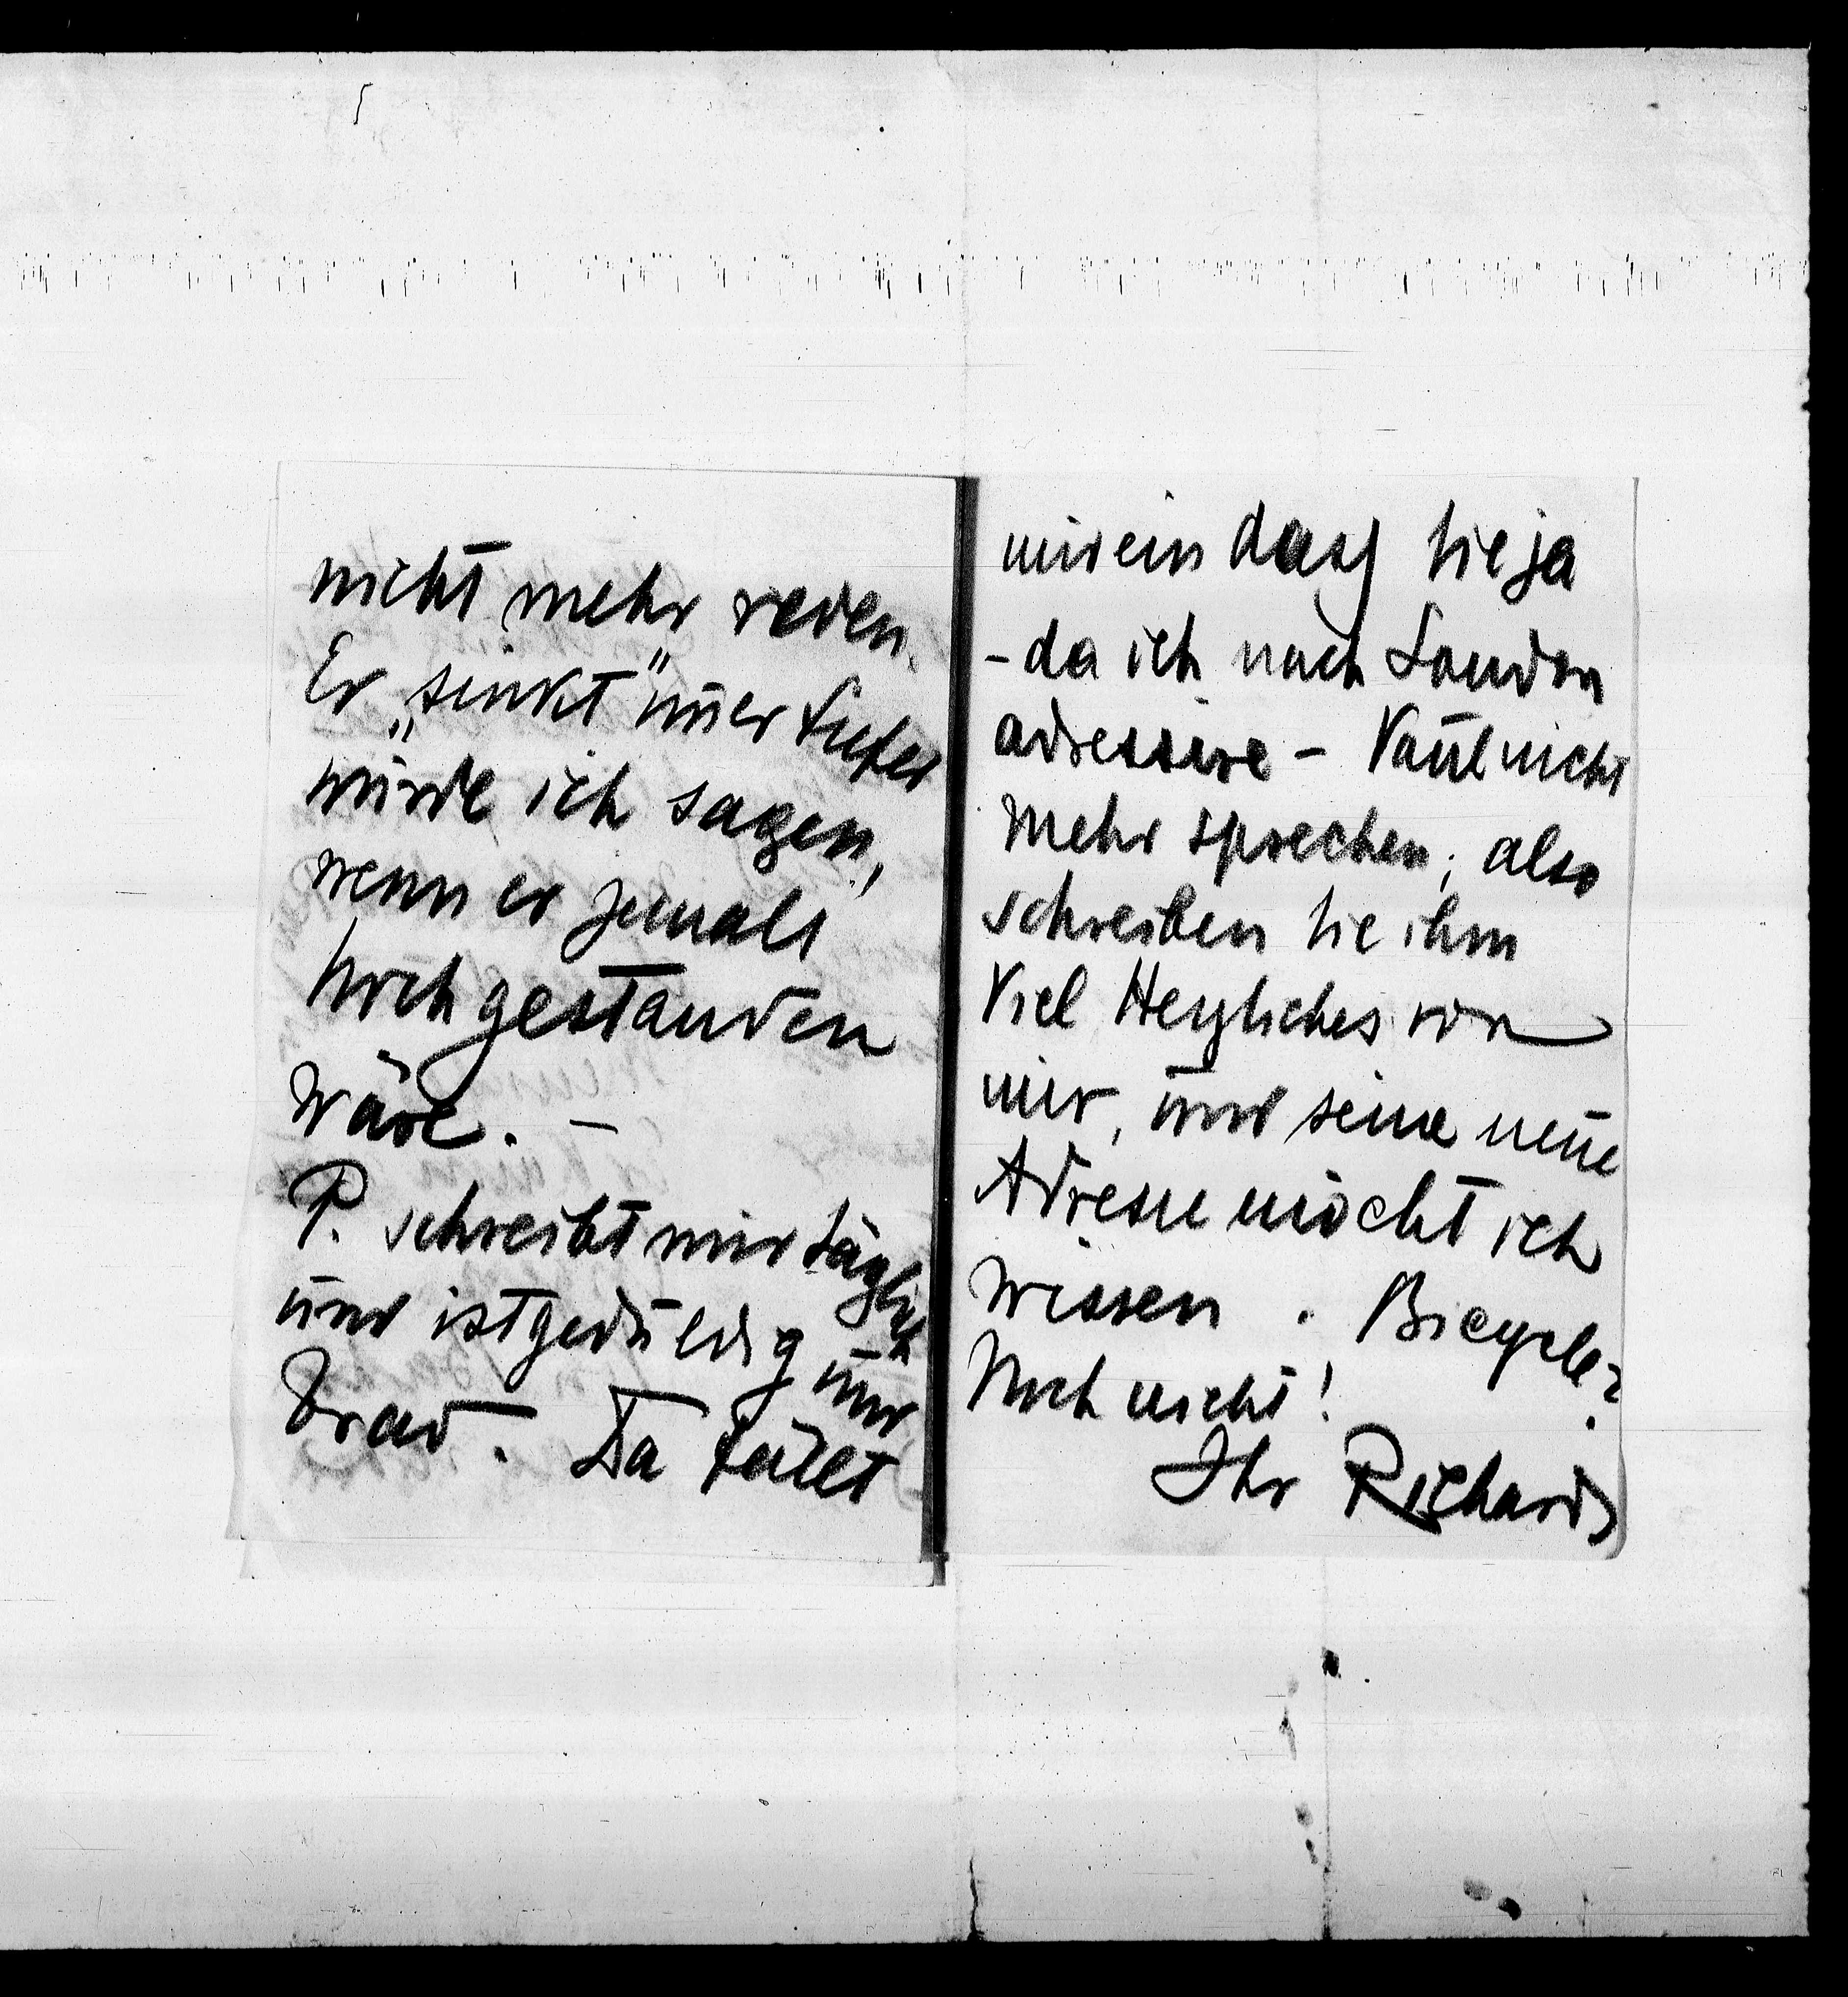 nicht mehr reden.
Er „sinkt" im̄er tiefer
würde ich sagen,
wenn er jemals
hoch gestanden
wäre. –
P. schreibt mir täglich
und ist geduldig und
brav. Da fällt
mir ein dass Sie ja
– da ich nach London
adressire – Paul nicht
mehr sprechen; also
schreiben Sie ihm
viel Herzliches von
mir, und seine neue
Adresse möcht ich
wissen. Bicycle?
Noch nicht!
Ihr Richard